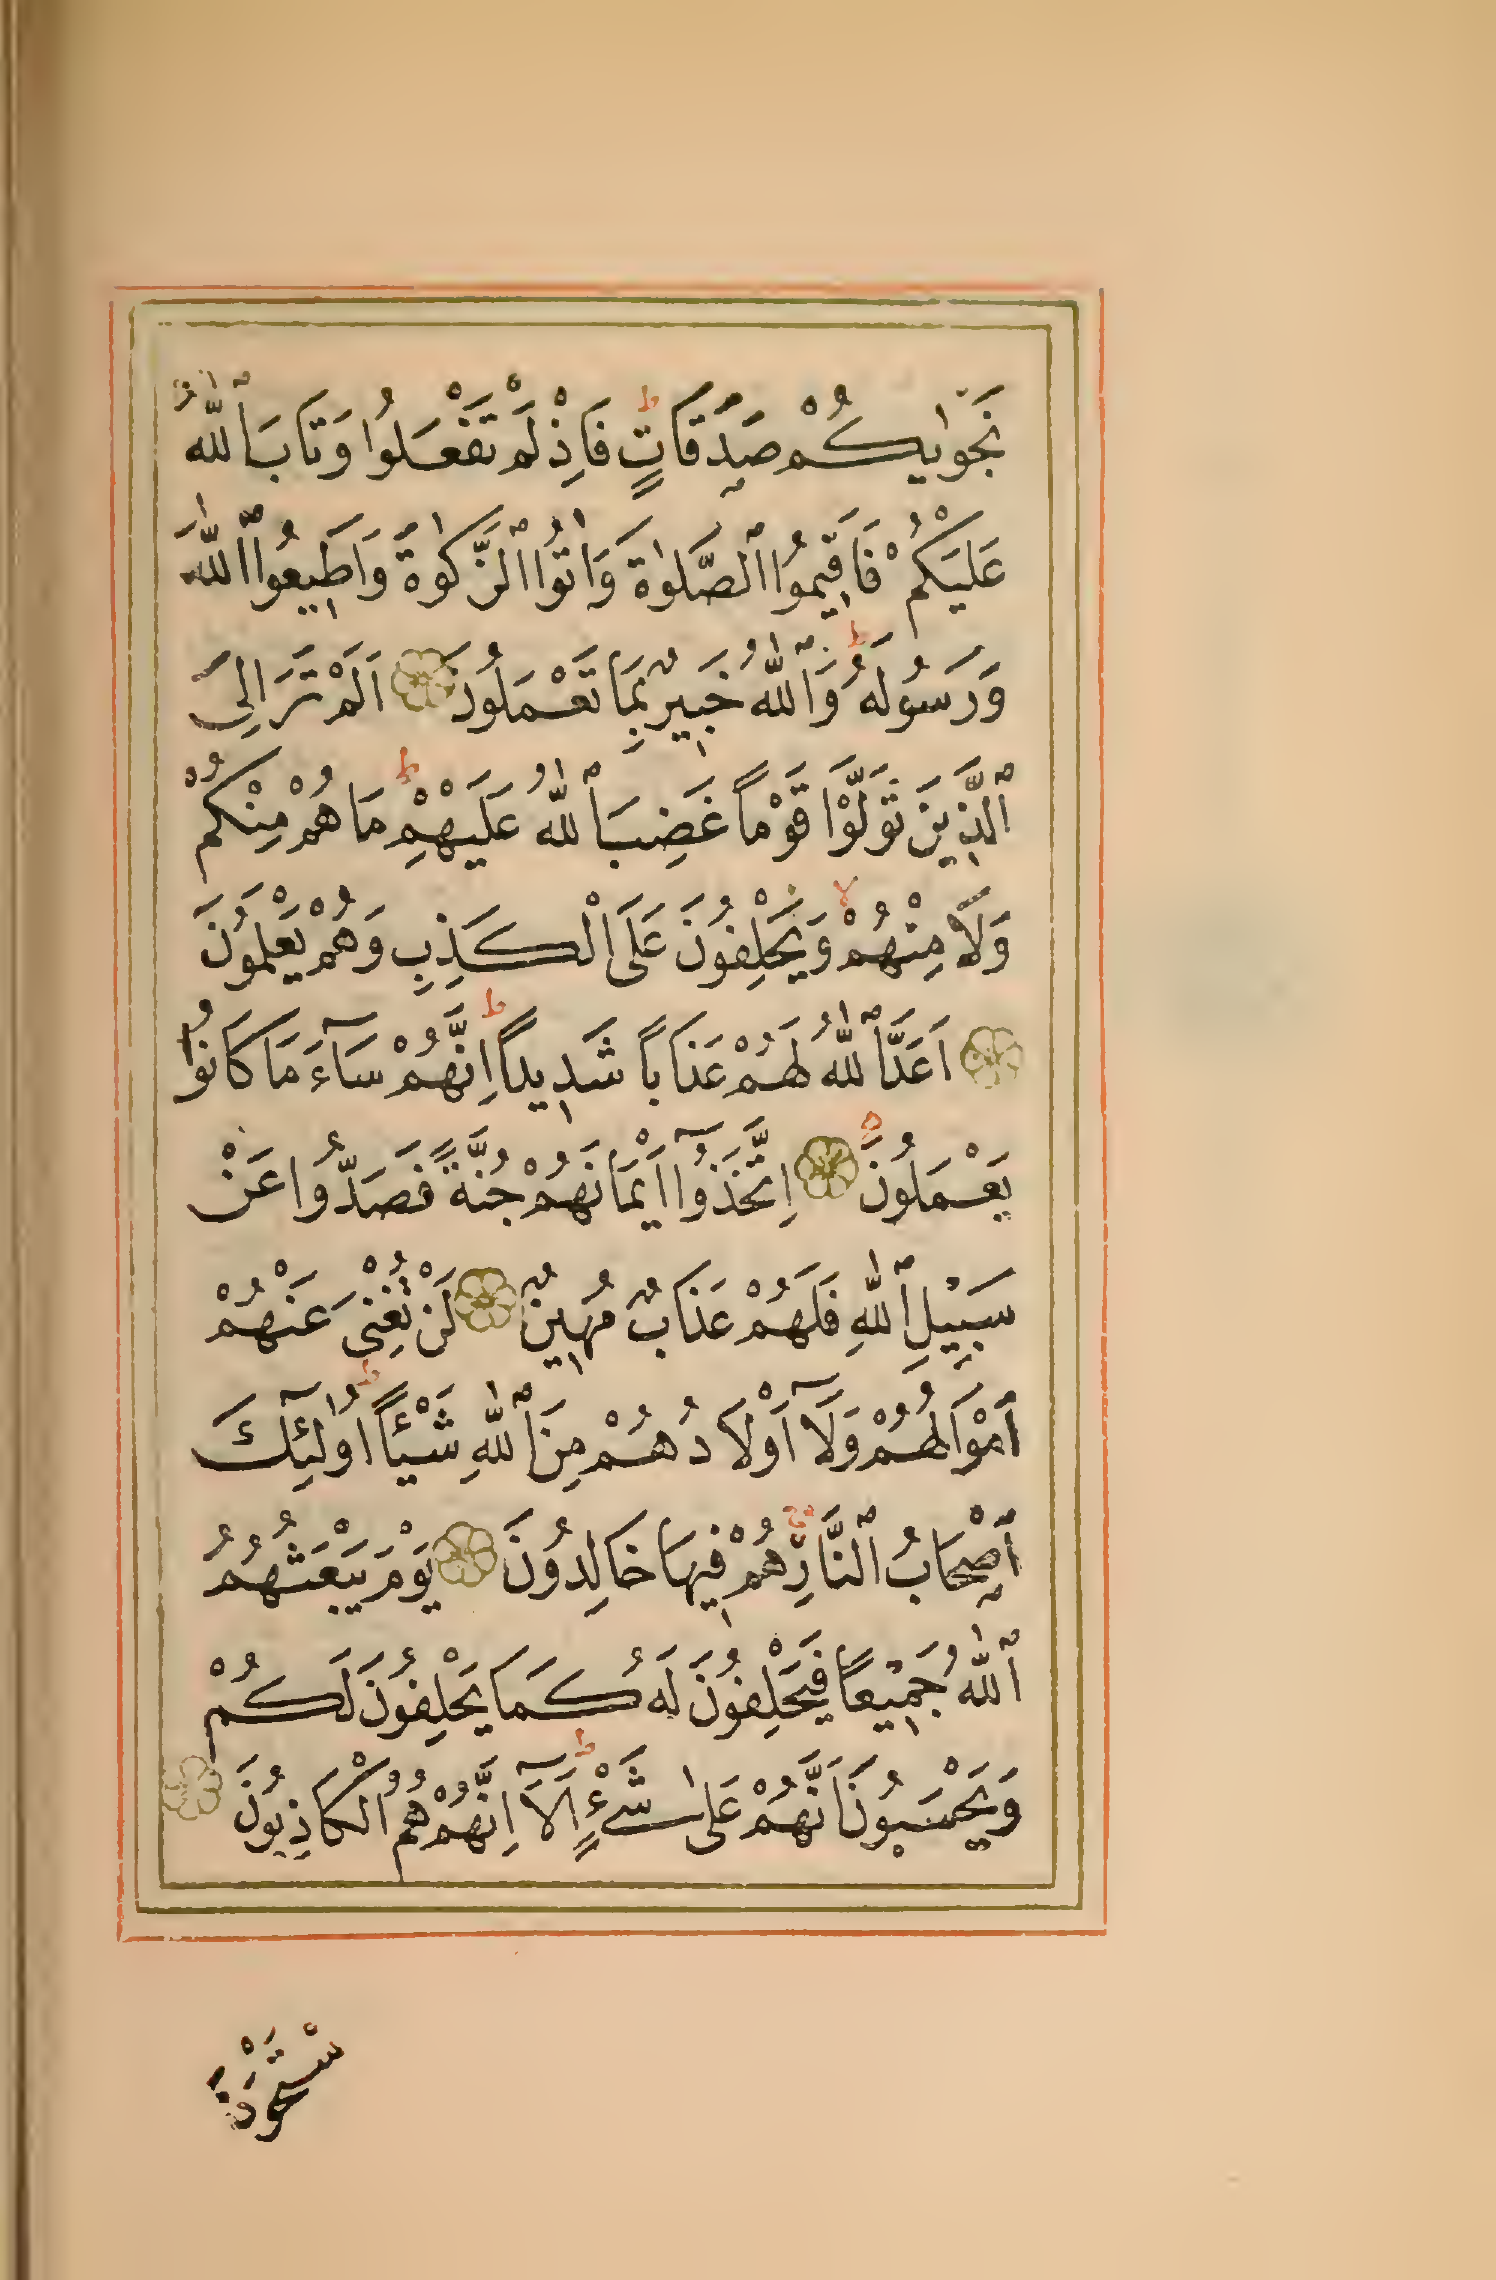 نَجْوٰيكُمْ صَدَقَاتٍ ط فَاِذْ لَمْ تَفْعَلُوا وَتَابَ ٱللّٰهُ
عَلَيْكُمْ فَاَقِيمُوا ٱلصَّلٰوةَ وَاٰتُوا ٱلزَّكٰوةَ وَاَطِيعُوا ٱللّٰهَ
وَرَسُولَهُ ط وَٱللّٰهُ خَبِيرٌ بِمَا تَعْمَلُونَ اَلَمْ تَرَ اِلَى
ٱلَّذِينَ تَوَلَّوْا قَوْماً غَضِبَ ٱللّٰهُ عَلَيْهِمْ ط مَا هُمْ مِنْكُمْ
وَلَا مِنْهُمْ لا وَيَحْلِفُونَ عَلَى الْكَذِبِ وَهُمْ يَعْلَمُونَ
اَعَدَّ ٱللّٰهُ لَهُمْ عَذَاباً شَدِيداً ط اِنَّهُمْ سَآءَ مَا كَانُوا
يَعْمَلُونَ ه اِتَّخَذُوٓا اَيْمَانَهُمْ جُنَّةً فَصَدُّوا عَنْ
سَبِيلِ ٱللّٰهِ فَلَهُمْ عَذَابٌ مُهِينٌ لَنْ تُغْنِىَ عَنْهُمْ
اَمْوَالُهُمْ وَلَآ اَوْلَادُهُمْ مِنَ ٱللّٰهِ شَيْئاً ط اُولٰٓئِكَ
اَصْحَابُ ٱلنَّارِ هُمْ فِيهَا خَالِدُونَ يَوْمَ يَبْعَثُهُمُ
ٱللّٰهُ جَمِيعاً فَيَحْلِفُونَ لَهُ كَمَا يَحْلِفُونَ لَكُمْ
وَيَحْسَبُونَ اَنَّهُمْ عَلٰى شَىْءٍ ط اَلَآ اِنَّهُمْ هُمُ الْكَاذِبُونَ
سْتَحْوَذَ